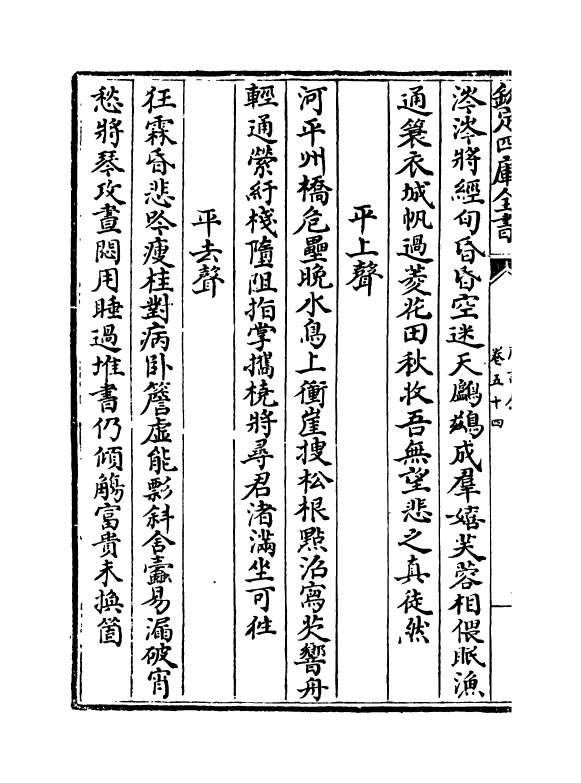 欽定四庫全書
卷五十四
涔涔將經旬昏昏空迷天鸕鷀成羣嬉芙蓉相偎眠漁
通簑衣城帆過菱花田秋收吾無望悲之真徒然
平上聲
河平州橋危壘晚水鳥上衝崖搜松根點沼寫芡響舟
輕通縈紆棧墮阻指掌攜橈將尋君渚滿坐可徃
平去聲
狂霖昏悲吟瘦桂對病卧簷虛能彯斜舍蠹易漏破宵
愁將琴攻晝悶用睡過堆書仍傾觴富貴未換箇